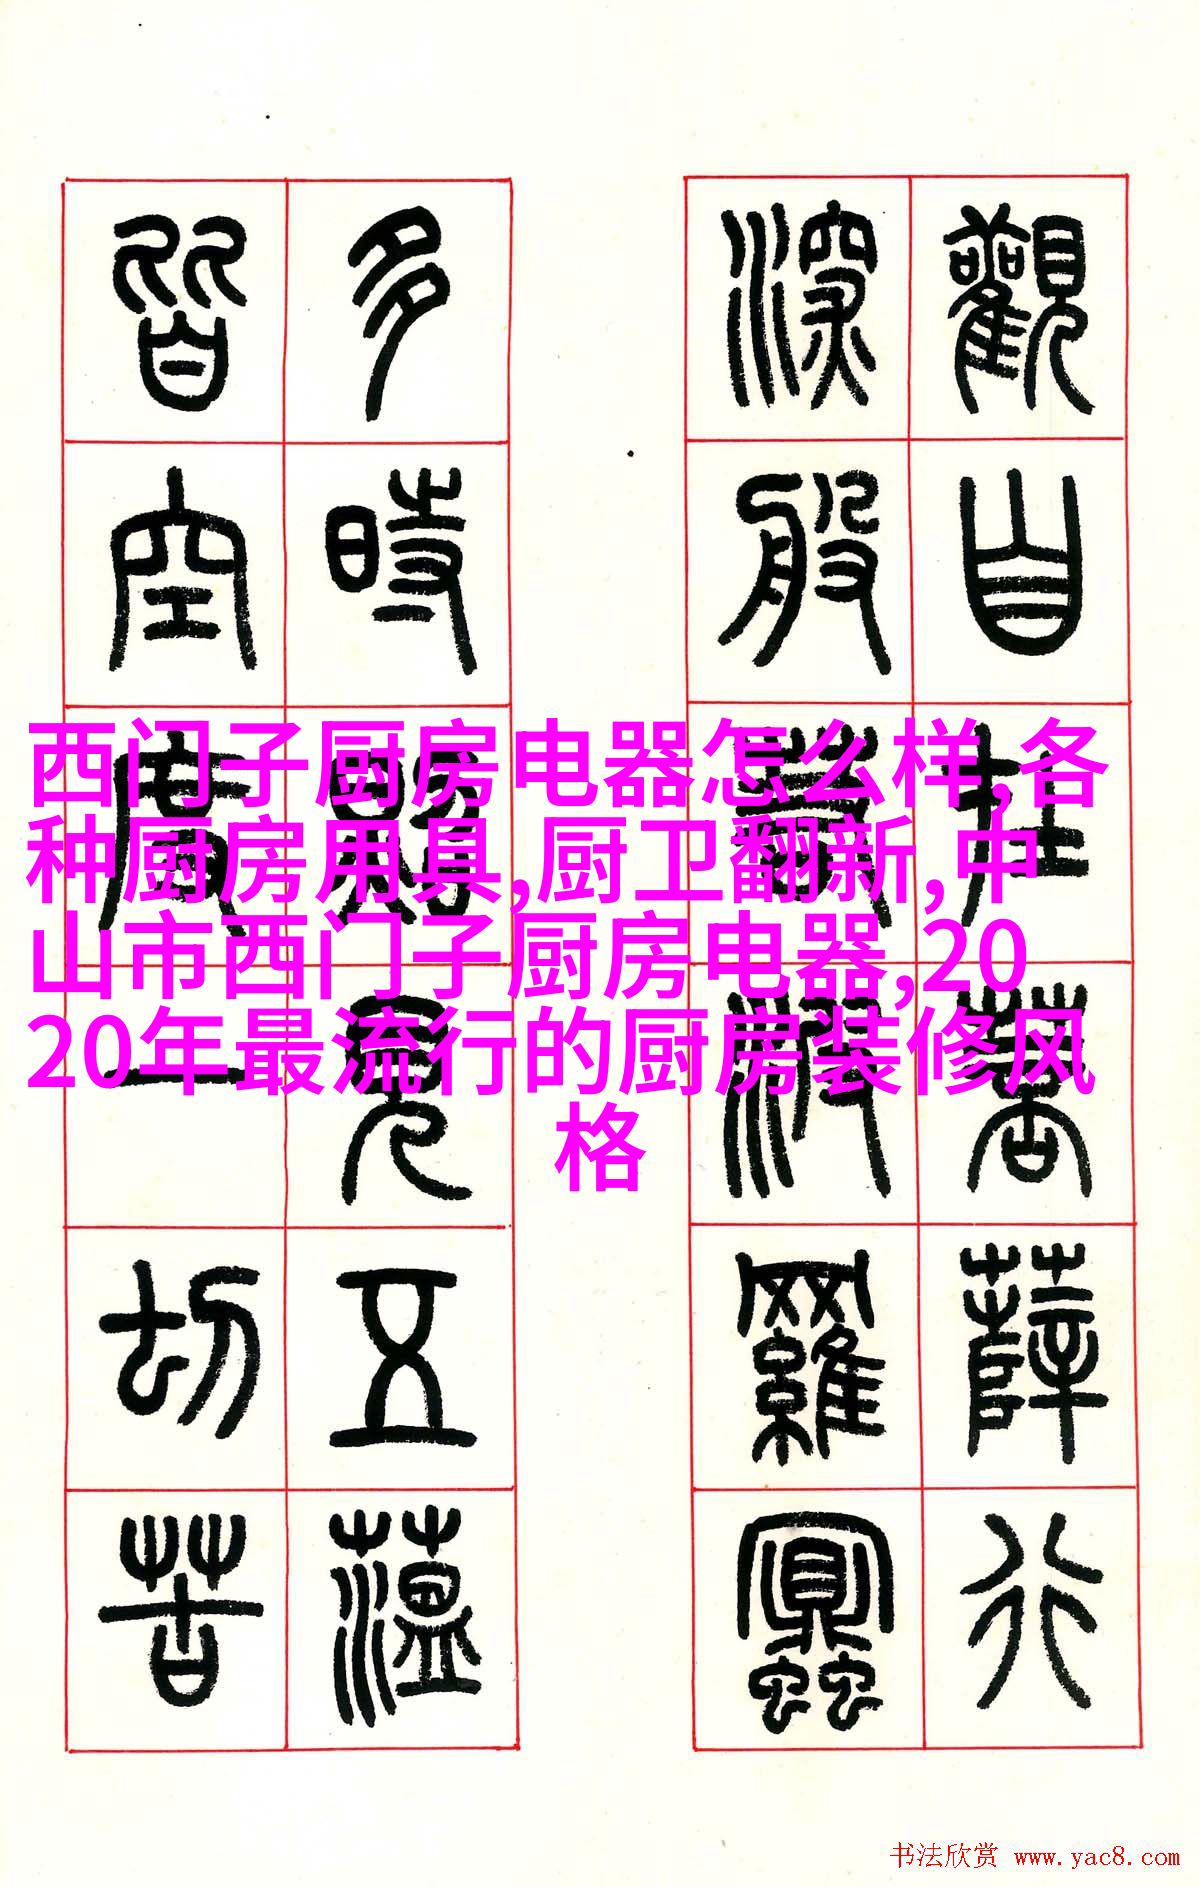 西门子厨房电器怎么样,各
种厨房用具,厨卫翻新,中
山市西门子厨房电器,20
20年最流行的厨房装修风
格
觀自在菩薩行
深般若波羅蜜
多時照見五薀
皆空度一切苦
书法欣赏 www.yac8.com